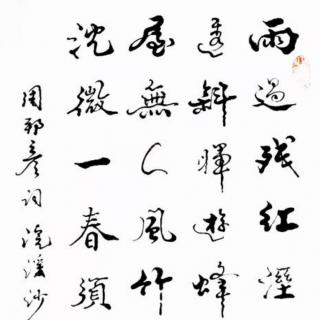 雨過残紅溼
透斜暉遊蜂
屋無人風竹
沈微一春須
周邦彦词浣溪沙